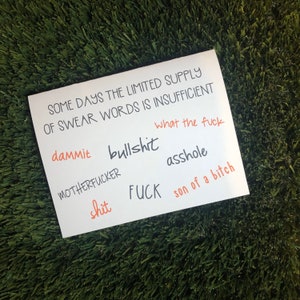 SOME DAYS THE LIMITED SUPPLY
OF SWEAR WORDS IS INSUFFICIENT
what the fuck
dammit
bullshit
asshole
MOTHERFUCKER
FUCK
son of a bitch
shit